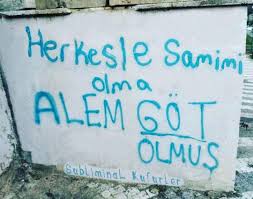 Herkesle Samimi
olma
ALEM GÖT
OLMUŞ
Subliminal Küfürler